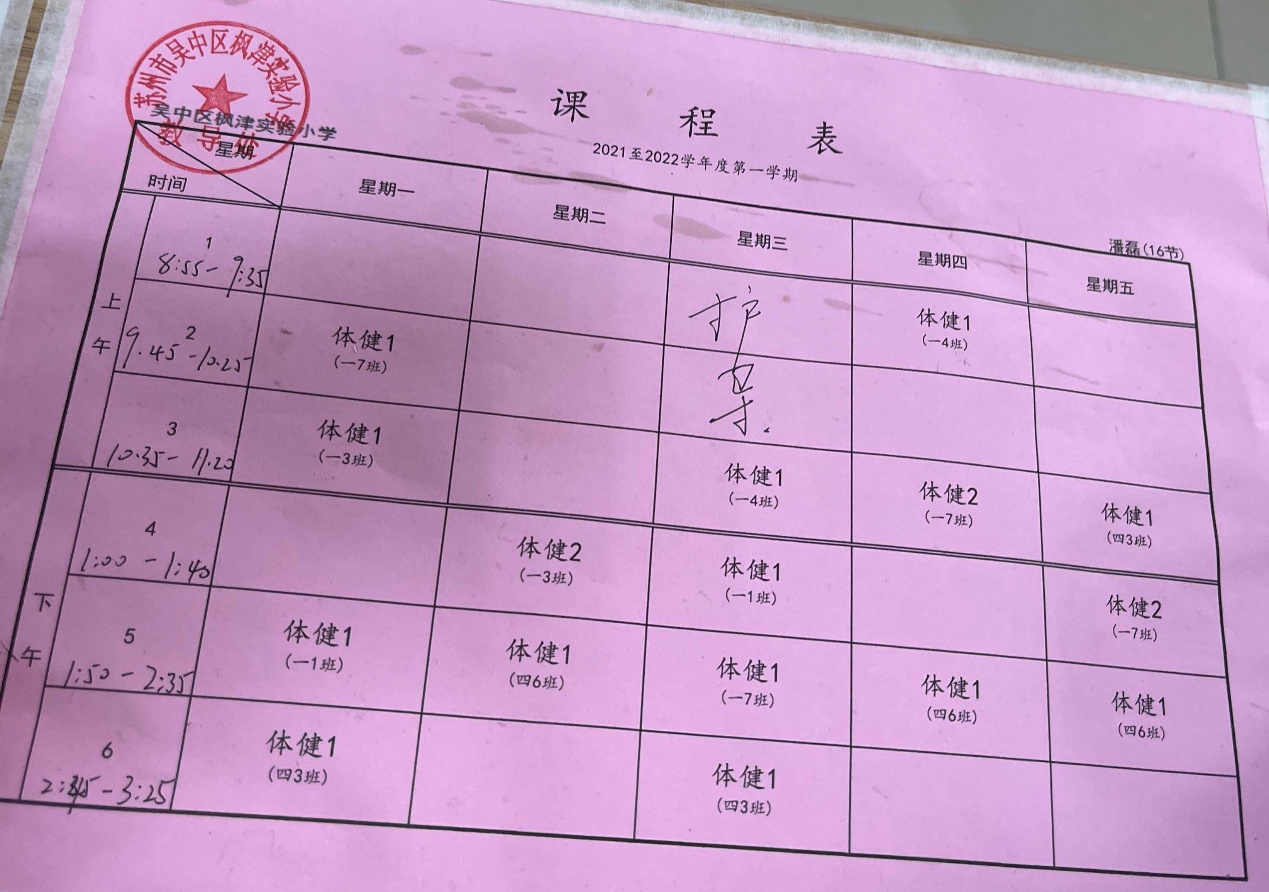 苏州市吴中区枫津实验小学
教导处
吴中区枫津实验小学
课程表
2021至2022学年度第一学期
潘磊(16节)
星期
时间
星期一
星期二
星期三
星期四
星期五
上午
1
8:55-9:35
体健1
(一4班)
2
9.45-10.25
体健1
(一7班)
3
10.35-11.20
体健1
(一3班)
体健1
(一4班)
体健2
(一7班)
体健1
(四3班)
下午
4
1:00-1:40
体健2
(一3班)
体健1
(一1班)
体健2
(一7班)
5
1:50-2:35
体健1
(一1班)
体健1
(四6班)
体健1
(一7班)
体健1
(四6班)
体健1
(四6班)
6
2:45-3:25
体健1
(四3班)
体健1
(四3班)